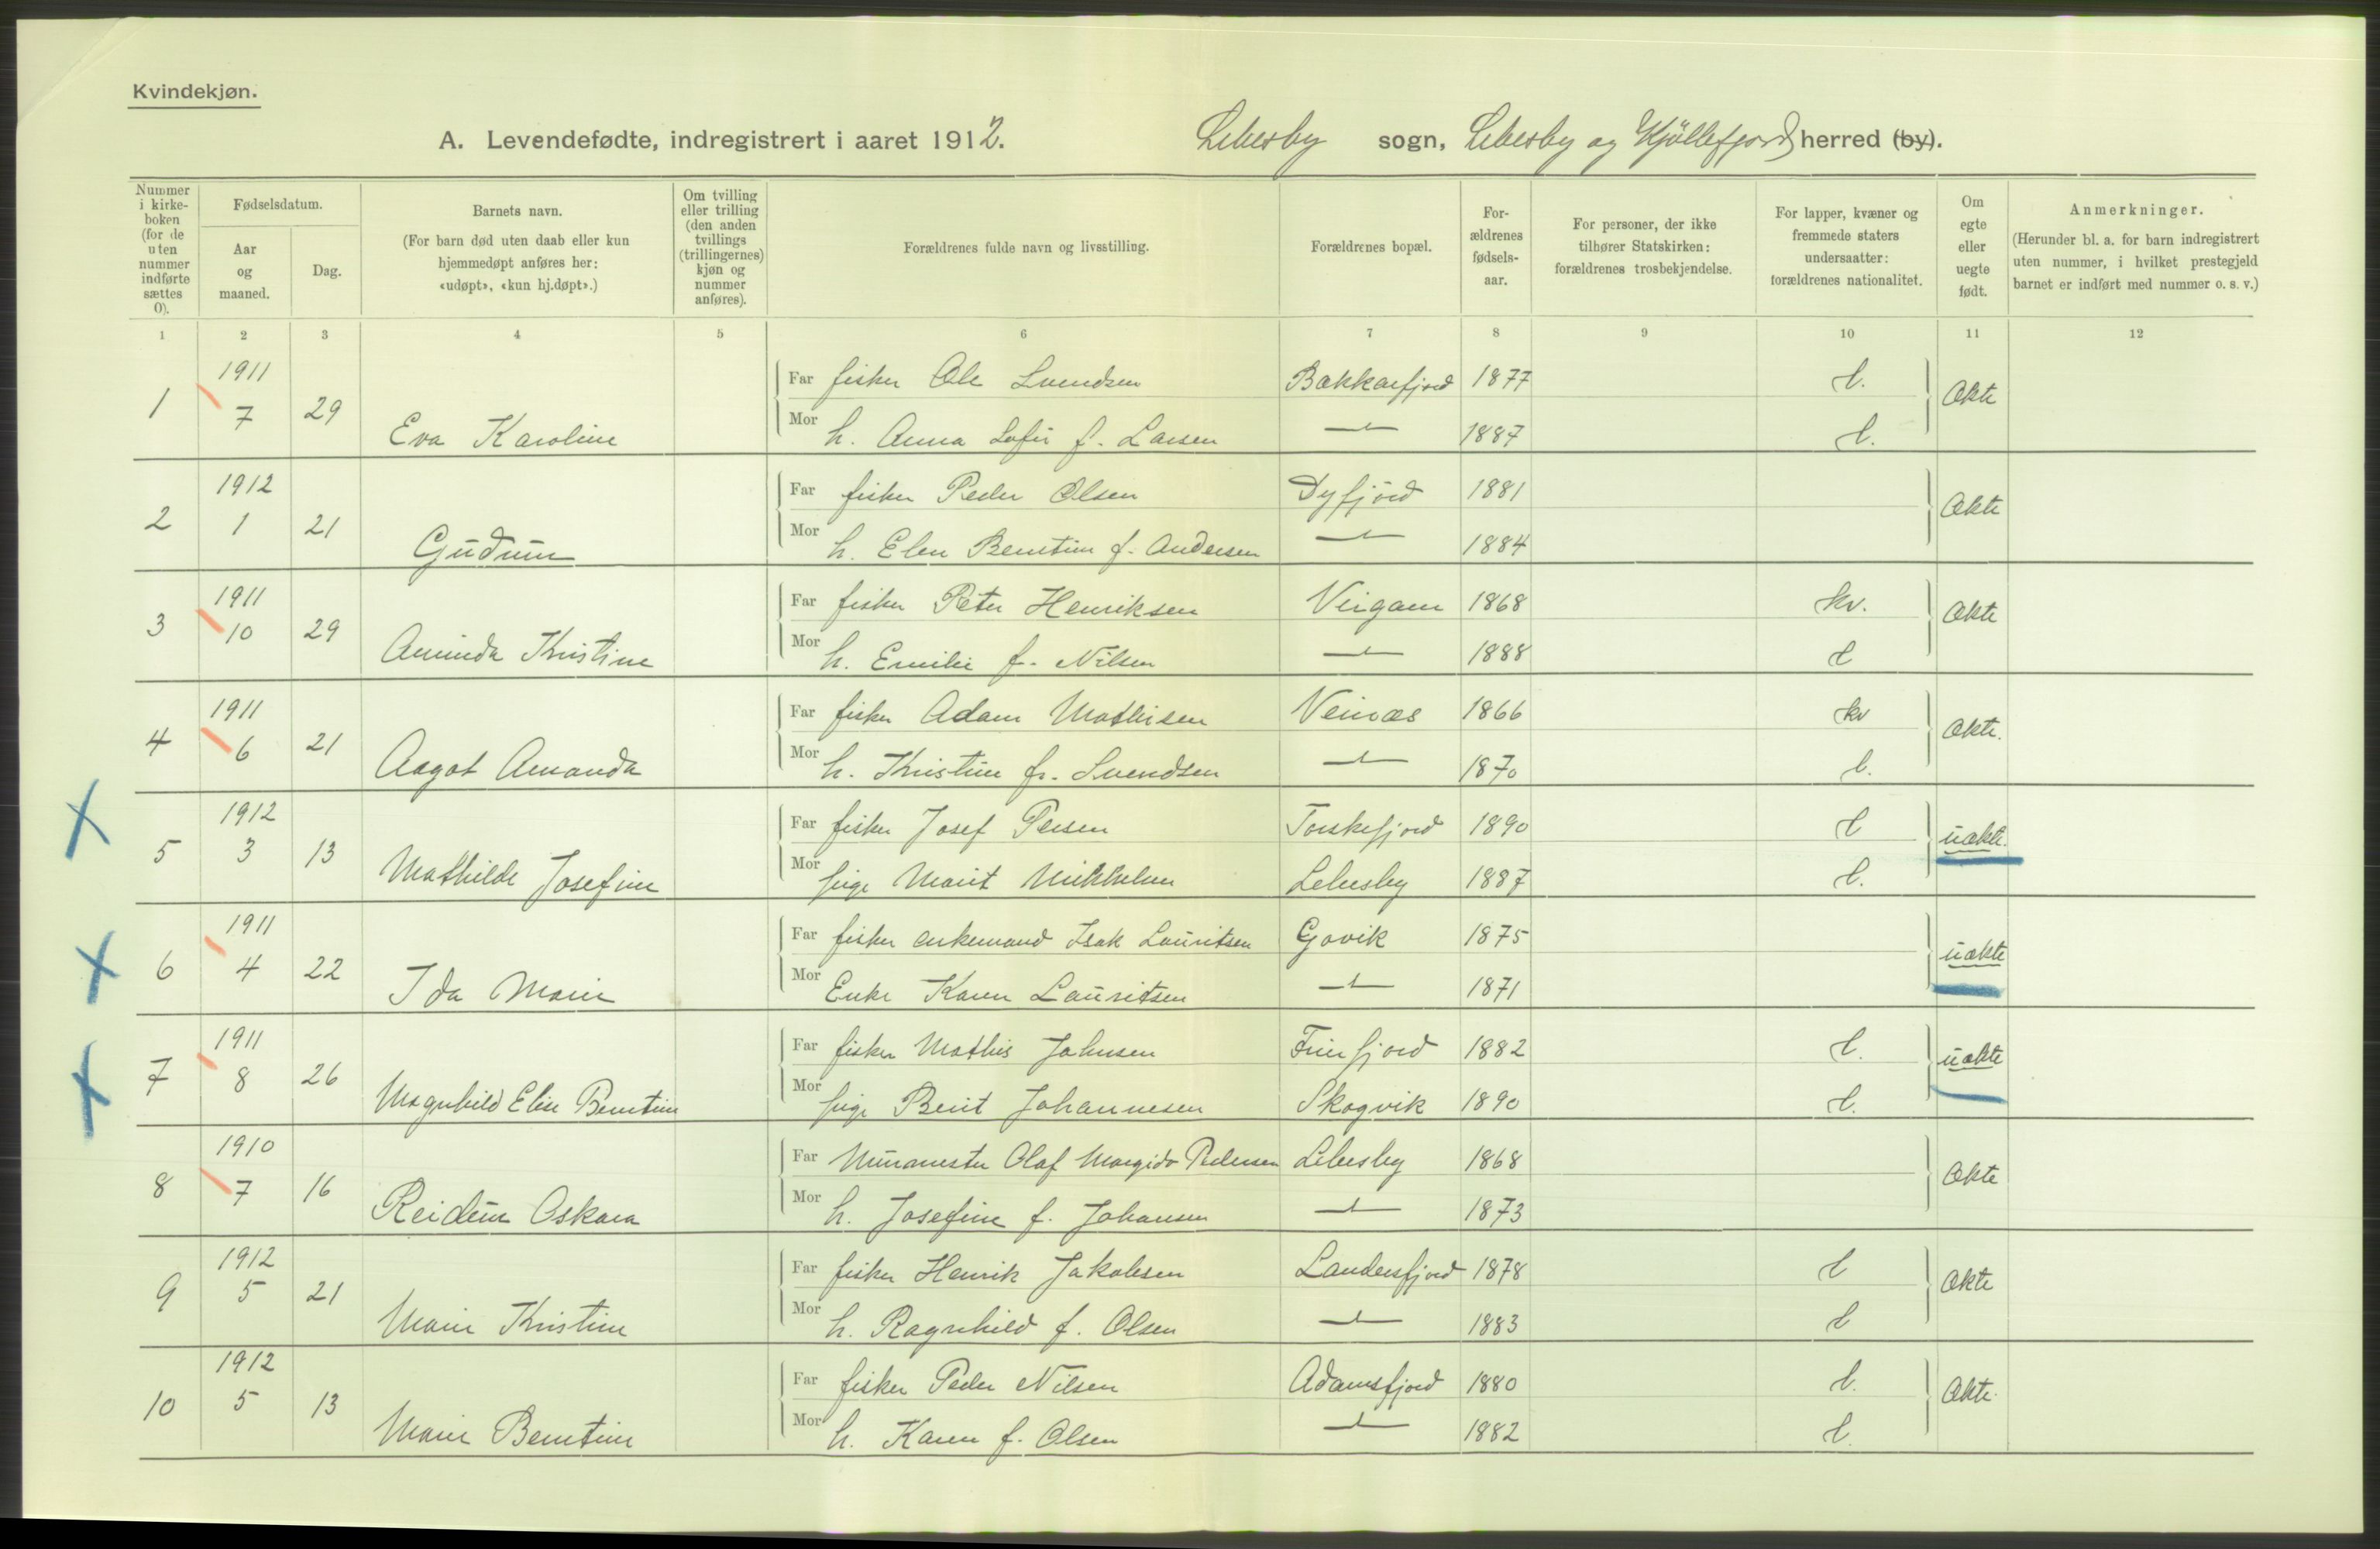 Kvindekjøn.
A. Levendefødte, indregistrert i aaret 1912. Lebesby sogn, Lebesby og Kjöllefjord herred (by).
Nummer i kirke-boken (for de uten nummer indførte sættes 0).
Fødselsdatum.
Aar og maaned.
Dag.
Barnets navn.
(For barn død uten daab eller kun hjemmedøpt anføres her: «udøpt», «kun hj.døpt».)
Om tvilling eller trilling (den anden tvillings (trillingernes) kjøn og nummer anføres).
Forældrenes fulde navn og livsstilling.
Forældrenes bopæl.
For-ældrenes fødsels-aar.
For personer, der ikke tilhører Statskirken: forældrenes trosbekjendelse.
For lapper, kvæner og fremmede staters undersaatter: forældrenes nationalitet.
Om egte eller uegte født.
Anmerkninger.
(Herunder bl. a. for barn indregistrert uten nummer, i hvilket prestegjeld barnet er indført med nummer o. s. v.)
1 2 3 4 5 6 7 8 9 10 11 12
1 1911 7 29 Eva Karoline
Far fisker Ole Svendsen Bekkarfjord 1877 l. Ækte
Mor h. Anna Sofie f. Larsen 1887 l.
2 1912 1 21 Gudrun
Far fisker Peder Olsen Dyfjord 1881 Ækte
Mor h. Elen Berntine f. Andersen 1884
3 1911 10 29 Aminda Kristine
Far fisker Peter Henriksen Veigam 1868 kv. Ækte
Mor h. Emilie f. Nilsen 1888 l
4 1911 6 21 Aagot Amanda
Far fisker Adam Mathisen Veinæs 1866 kv Ækte.
Mor h. Kristine f. Svendsen 1870 l.
5 1912 3 13 Mathilde Josefine
Far fisker Josef Persen Torskefjord 1890 l uækte.
Mor pige Marit Mikkelsen Lebesby 1887 l.
6 1911 4 22 Ida Marie
Far fisker enkemand Isak Lauritsen Gavik 1875 uækte
Mor Enke Karen Lauritsen 1871
7 1911 8 26 Magnhild Elise Berntine
Far fisker Mathis Johnsen Friefjord 1882 l. uækte
Mor pige Berit Johannesen Skogvik 1890 l.
8 1910 7 16 Reidun Oskara
Far Murmester Olaf Margido Pedersen Lebesby 1868 Ækte
Mor h. Josefine f. Johansen 1873
9 1912 5 21 Marie Kristine
Far fisker Henrik Jakobsen Landersfjord 1878 l Ækte
Mor h. Ragnhild f. Olsen 1883 l
10 1912 5 13 Marie Berntine
Far fisker Peder Nilsen Adamsfjord 1880 l. Ækte.
Mor h. Karen f. Olsen 1882 l.